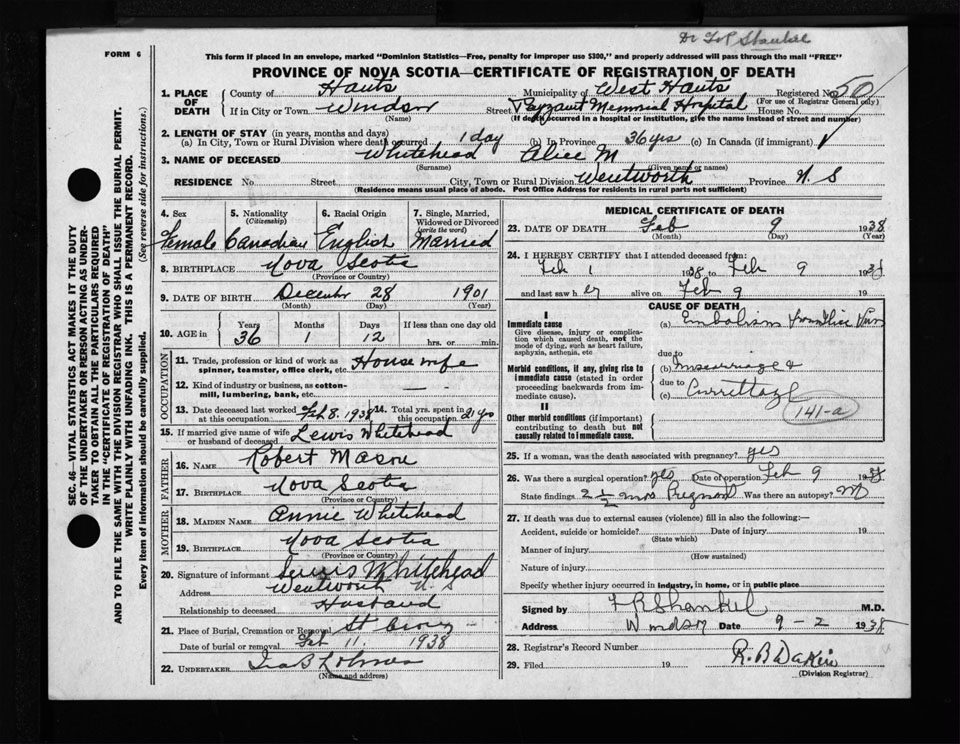 Dr F R Shankel
FORM 6
This form if placed in an envelope, marked "Dominion Statistics—Free, penalty for improper use $300," and properly addressed will pass through the mail "FREE"
PROVINCE OF NOVA SCOTIA—CERTIFICATE OF REGISTRATION OF DEATH
SEC. 46—VITAL STATISTICS ACT MAKES IT THE DUTY
OF THE UNDERTAKER OR PERSON ACTING AS UNDER-
TAKER TO OBTAIN ALL THE PARTICULARS REQUIRED
IN THE "CERTIFICATE OF REGISTRATION OF DEATH"
AND TO FILE THE SAME WITH THE DIVISION REGISTRAR WHO SHALL ISSUE THE BURIAL PERMIT.
WRITE PLAINLY WITH UNFADING INK. THIS IS A PERMANENT RECORD.
Every item of information should be carefully supplied. (See reverse side for instructions.)
1. PLACE OF DEATH County of Hants Municipality of West Hants Registered No. 50
(For use of Registrar General only)
If in City or Town Windsor Street Payzant Memorial Hospital House No.
(Name) (If death occurred in a hospital or institution, give the name instead of street and number)
2. LENGTH OF STAY (in years, months and days)
(a) In City, Town or Rural Division where death occurred 1 day (b) In Province 36 yrs (c) In Canada (if immigrant)
3. NAME OF DECEASED Whitehead Alice M
(Surname) (Given name or names)
RESIDENCE No. Street City, Town or Rural Division Wentworth Province N. S
(Residence means usual place of abode. Post Office Address for residents in rural parts not sufficient)
4. Sex 5. Nationality (Citizenship) 6. Racial Origin 7. Single, Married, Widowed or Divorced (write the word)
Female Canadian English Married
8. BIRTHPLACE Nova Scotia
(Province or Country)
9. DATE OF BIRTH December 28 1901
(Month) (Day) (Year)
10. AGE in Years Months Days If less than one day old
36 1 12 hrs. or min.
OCCUPATION
11. Trade, profession or kind of work as spinner, teamster, office clerk, etc. House wife
12. Kind of industry or business, as cotton-mill, lumbering, bank, etc. —
13. Date deceased last worked at this occupation Feb 8. 1938 14. Total yrs. spent in this occupation 21 yrs
15. If married give name of wife or husband of deceased Lewis Whitehead
FATHER
16. NAME Robert Mason
17. BIRTHPLACE Nova Scotia
(Province or Country)
MOTHER
18. MAIDEN NAME Annie Whitehead
19. BIRTHPLACE Nova Scotia
(Province or Country)
20. Signature of informant Lewis Whitehead
Address Wentworth N S
Relationship to deceased Husband
21. Place of Burial, Cremation or Removal St Croix
Date of burial or removal Feb 11 1938
22. UNDERTAKER Ira B
(Name and address)
MEDICAL CERTIFICATE OF DEATH
23. DATE OF DEATH Feb 9 1938
(Month) (Day) (Year)
24. I HEREBY CERTIFY that I attended deceased from:
Feb 1 1938 to Feb 9 1938
and last saw her alive on Feb 9 19
CAUSE OF DEATH
I
Immediate cause (a) Embolism
Give disease, injury or complication which caused death, not the mode of dying, such as heart failure, asphyxia, asthenia, etc
due to
Morbid conditions, if any, giving rise to immediate cause (stated in order proceeding backwards from immediate cause). (b) Miscarriage &
due to
(c) Currettage
141-a
II
Other morbid conditions (if important) contributing to death but not causally related to immediate cause.
25. If a woman, was the death associated with pregnancy? yes
26. Was there a surgical operation? yes Date of operation Feb 9 1938
State findings 2 ½ mos Pregnant Was there an autopsy? No
27. If death was due to external causes (violence) fill in also the following:—
Accident, suicide or homicide? Date of injury 19
(State which)
Manner of injury
(How sustained)
Nature of injury
Specify whether injury occurred in industry, in home, or in public place
Signed by F R Shankel M.D.
Address Windsor Date 9 – 2 1938
28. Registrar's Record Number
29. Filed 19 R. B Dakin
(Division Registrar)